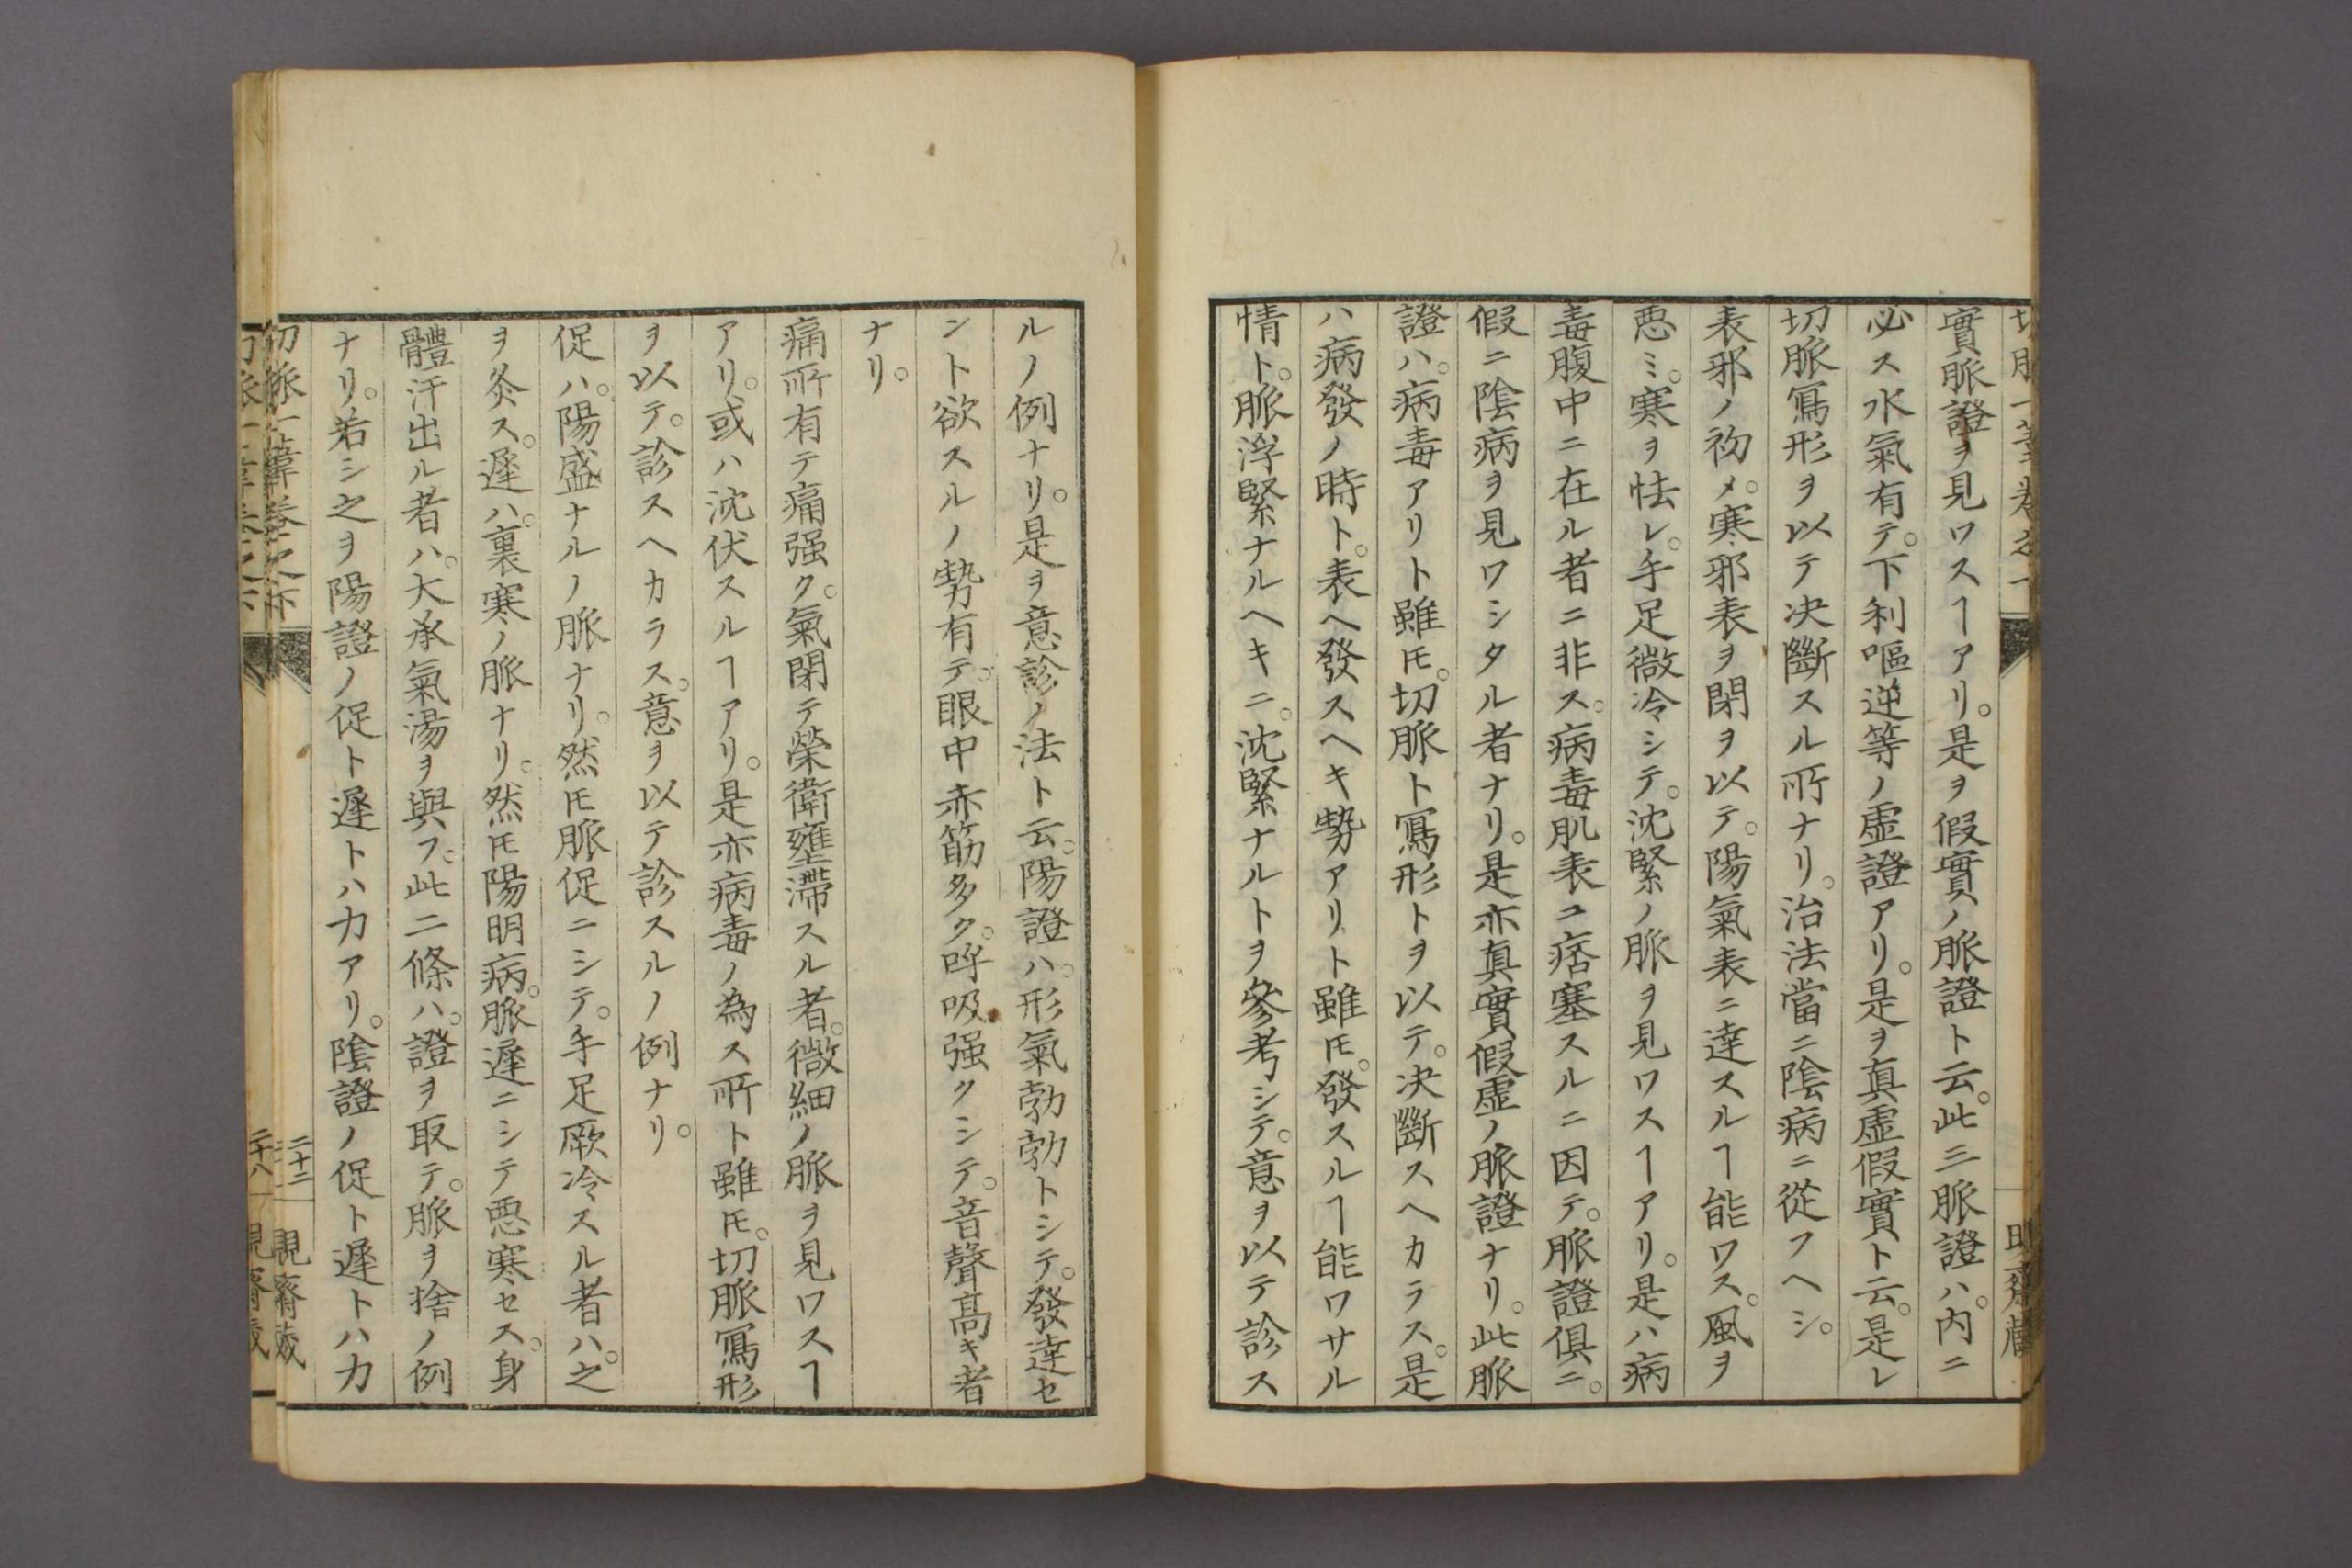 實脈證ヲ見ワスヿアリ。是ヲ假實ノ脈證ト云。此三脈證ハ。内ニ
必ス水氣有テ。下利嘔逆等ノ虛證アリ。是ヲ真虛假實ト云。是レ
切脈寫形ヲ以テ决斷スル所ナリ。治法當ニ陰病ニ從フヘシ。
表邪ノ初メ。寒邪表ヲ閉ヲ以テ。陽氣表ニ達スルヿ能ワス。風ヲ
悪ミ。寒ヲ怯レ。手足微冷シテ。沈緊ノ脈ヲ見ワスヿアリ。是ハ病
毒腹中ニ在ル者ニ非ス。病毒肌表ユ痞塞スルニ因テ。脈證俱ニ。
假ニ陰病ヲ見ワシタル者ナリ。是亦真實假虛ノ脈證ナリ。此脈
證ハ。病毒アリト雖𪜈。切脈ト寫形トヲ以テ。决斷スヘカラス。是
ハ病發ノ時ト。表ヘ發スヘキ勢アリト雖𪜈。發スルヿ能ワサル
情ト。脈浮緊ナルヘキニ。沈緊ナルトヲ參考シテ。意ヲ以テ診ス
ルノ例ナリ。是ヲ意診ノ法ト云。陽證ハ。形氣勃勃トシテ。發達セ
ント欲スルノ勢有テ。眼中赤筋多ク。呼吸强クシテ。音聲高キ者
ナリ。
痛所有テ痛强ク。氣閉テ榮衛壅滯スル者。微細ノ脈ヲ見ワスヿ
アリ。或ハ沈伏スルヿアリ。是亦病毒ノ為ス所ト雖𪜈。切脈寫形
ヲ以テ。診スヘカラス。意ヲ以テ診スルノ例ナリ。
促ハ。陽盛ナルノ脈ナリ。然𪜈脈促ニシテ。手足厥冷スル者ハ。之
ヲ灸ス。遲ハ。裏寒ノ脈ナリ。然𪜈陽明病。脈遲ニシテ悪寒セス。身
體汗出ル者ハ。大承氣湯ヲ與フ。此二條ハ。證ヲ取テ。脈ヲ捨ノ例
ナリ。若シ之ヲ陽證ノ促ト遲トハ力アリ。陰證ノ促ト遲トハ力
切脈一葦卷之下
二十三